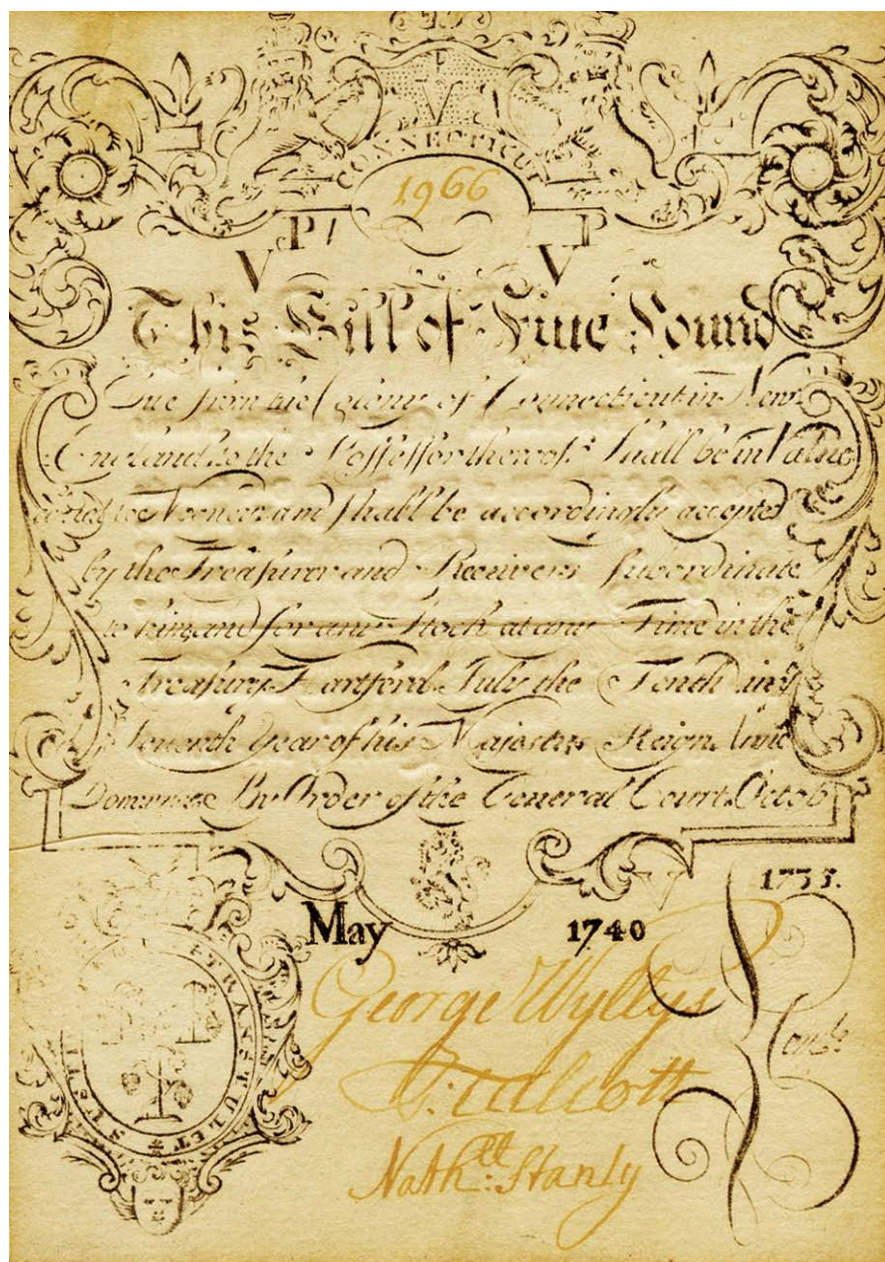 P
V
CONNECTICUT
1966
VP VP
This Bill of Five Pound
Due from the Colony of Connecticut in New
England to the Possessor thereof Shall be in Value
Equal to Money and shall be accordingly accepted
by the Treasurer and Receivers Subordinate
to him and for any Stock at any Time in the
Treasury Hartford July the Tenth in ye
Seventh Year of his Majesties Reign Anno
Domi By Order of the General Court Octob
1735.
May 1740
SVSTINET QVI TRANSTVLIT
George Wyllys
J: Talcott
Nath:ll Stanly